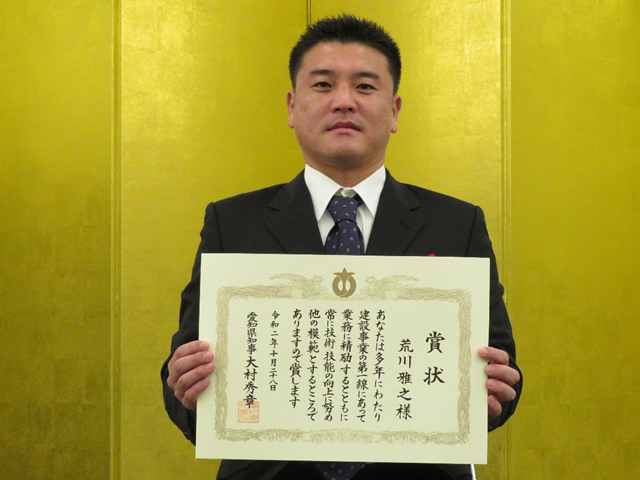 賞状
荒川雅之様
あなたは多年にわたり
建設事業の第一線にあって
業務に精励するとともに
常に技術技能の向上に努め
他の模範とするところで
ありますので賞します
令和二年十月二十八日
愛知県知事大村秀章